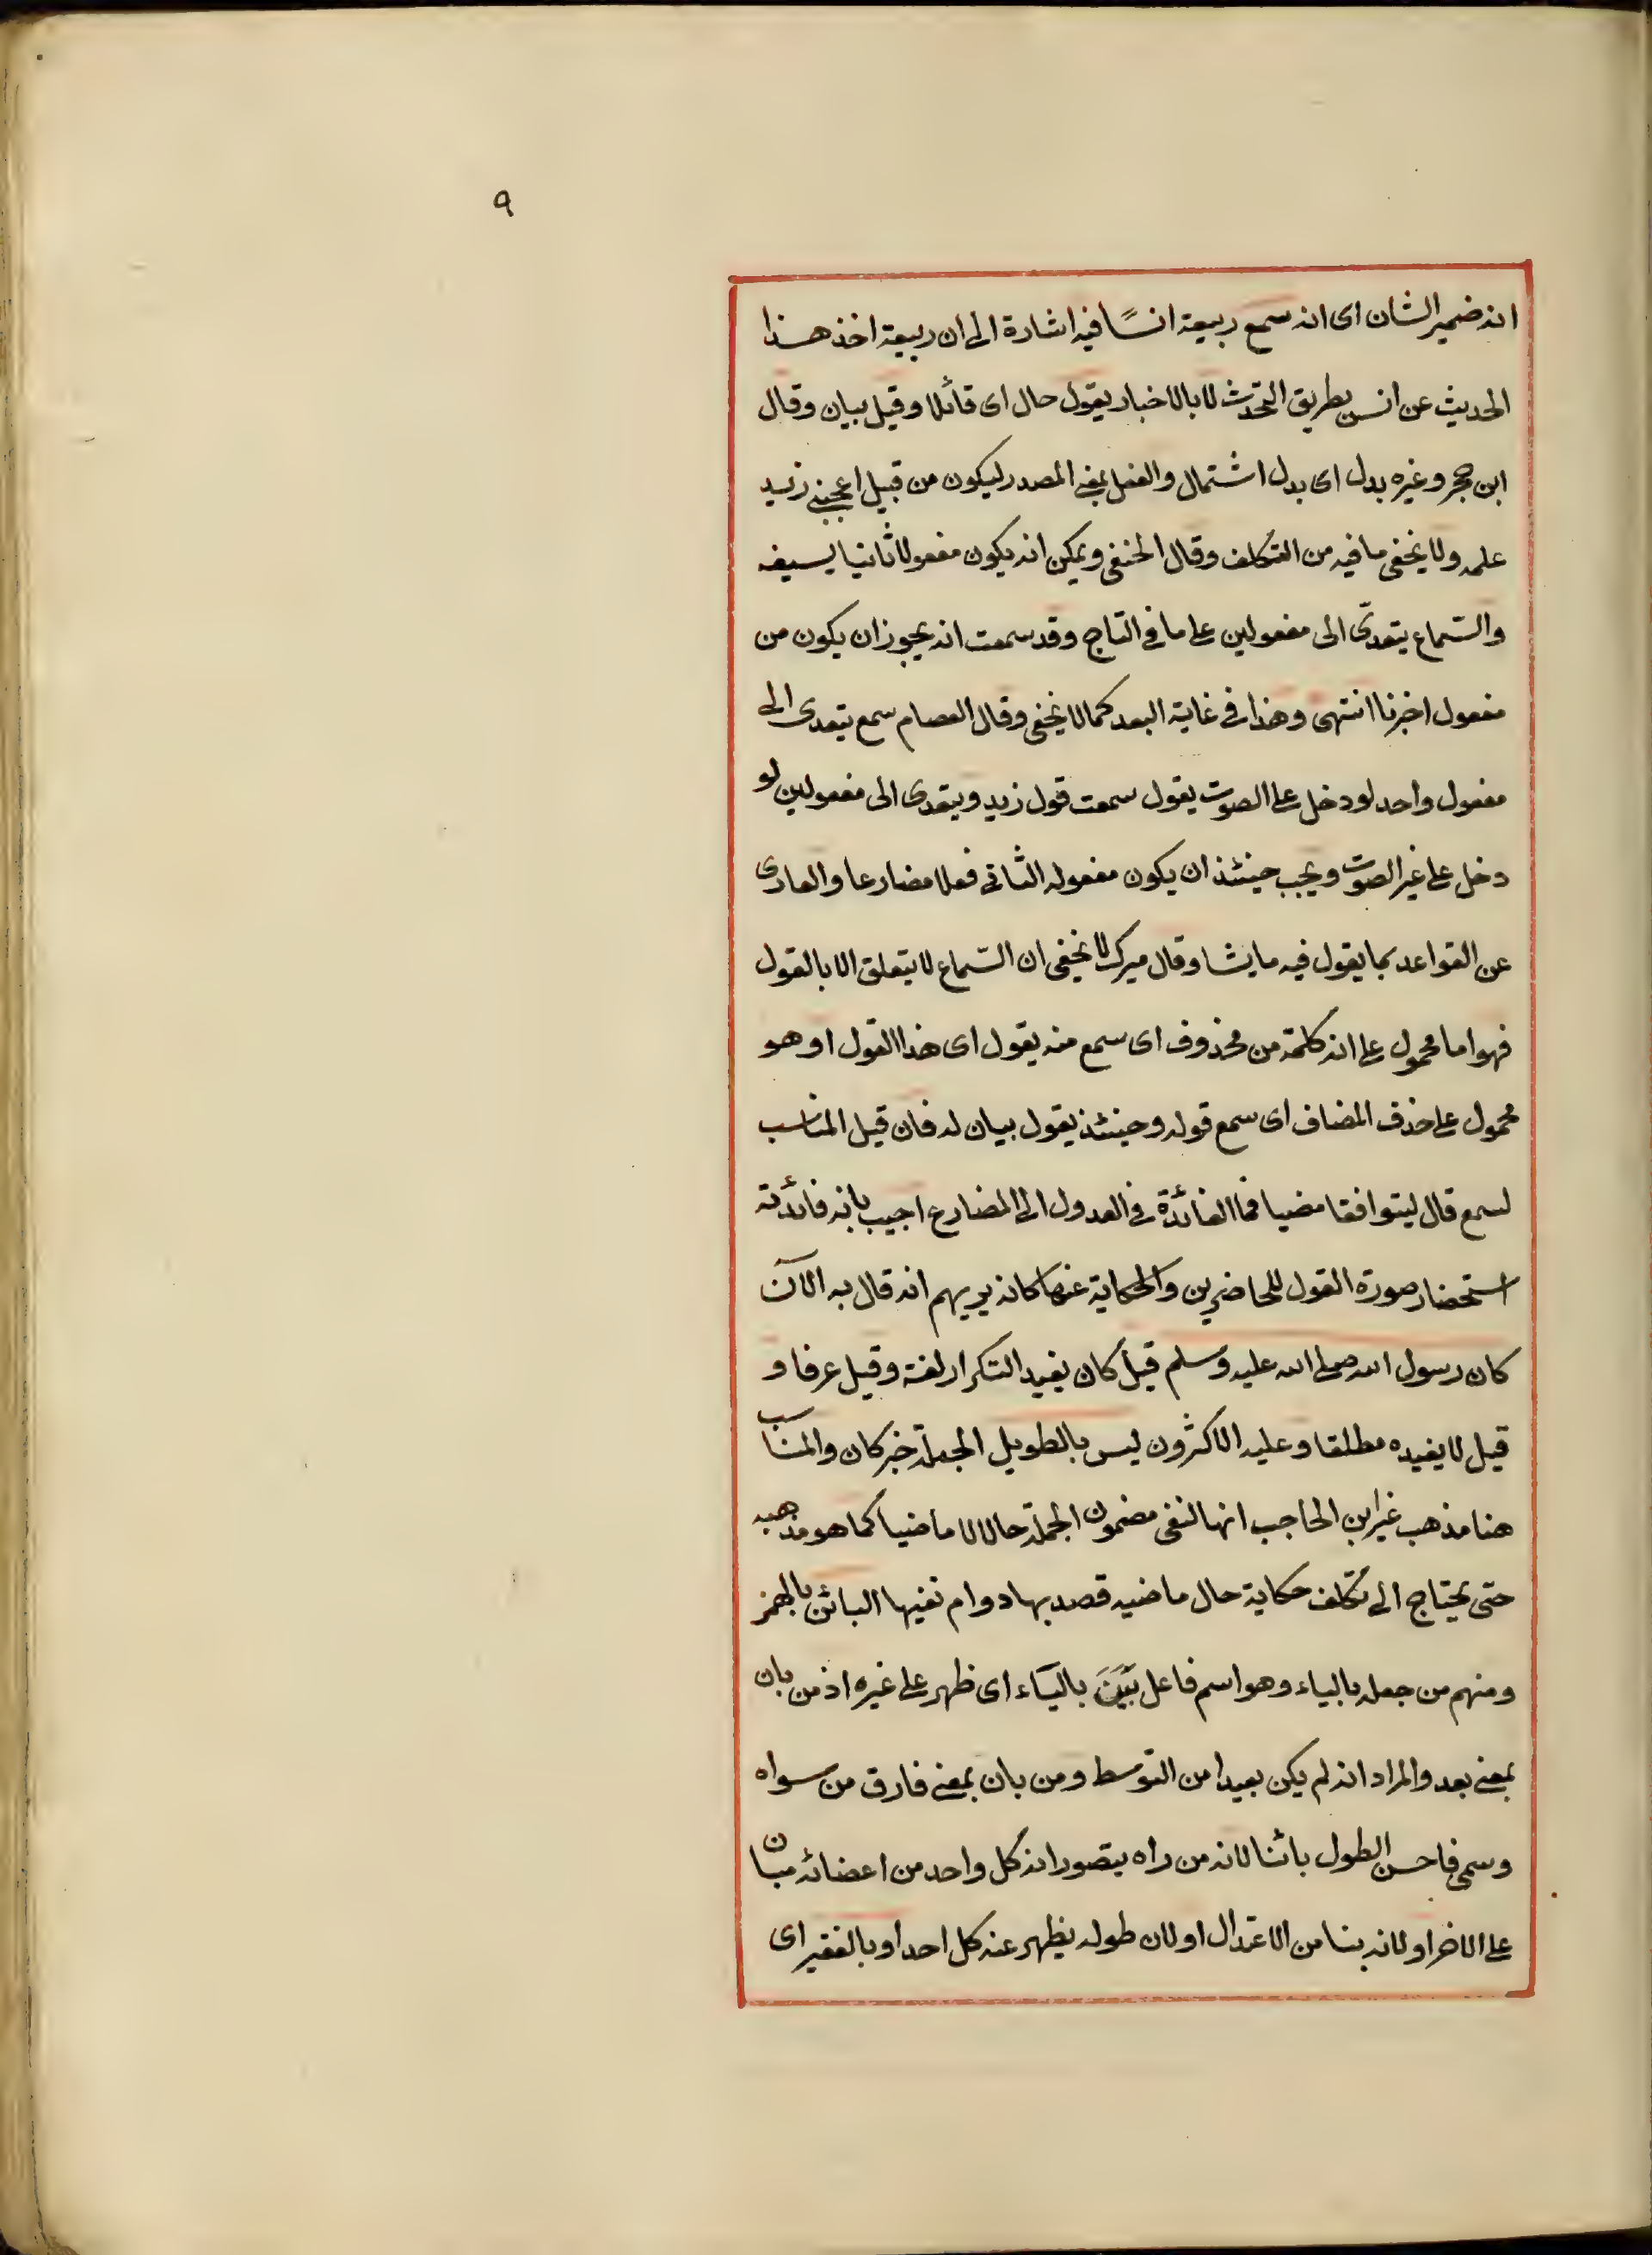 ٩
انه ضمير الشان اى انه سمع ربيعة انسًا فيه اشارة الى ان ربيعة اخذ هذا
الحديث عن انس بطريق التحدث لا بالاخبار يقول حال اى قائلا وقيل بيان وقال
ابن حجر وغيره بدل اى بدل اشتمال والفعل بمعنى المصدر ليكون من قبيل اعجبنى زيد
علمه ولا يخفى ما فيه من التكلف وقال الحنفى ويمكن انه يكون مفعولا ثانيا لسمع
والسّماع يتعدّى الى مفعولين على ما فى التاج وقد سمعت انه يجوز ان يكون من
مفعول اخبرنا انتهى وهذا فى غاية البعد كما لا يخفى وقال العصام سمع يتعدى الى
مفعول واحد لو دخل على الصوت يقول سمعت قول زيد ويتعدى الى مفعولين لو
دخل على غير الصوت ويجب حينئذ ان يكون مفعوله الثانى فعلا مضارعا والعارى
عن القواعد بما يقول فيه ما يشا وقال ميرك لا يخفى ان السّماع لا يتعلق الا بالقول
فهو اما محمول على انه كلمة من محذوف اى سمع منه يقول اى هذا القول او هو
محمول على حذف المضاف اى سمع قوله وحينئذ يقول بيان له فان قيل المناسب
لسمع قال ليتوافقا مضيا فما الفائدة فى العدول الى المضارع اجيب بانه فائدته
استحضار صورة القول للحاضرين والحكاية عنها كانه يريهم انه قال به الآن
كان رسول الله صلى الله عليه وسلم قيل كان يفيد التكرار لغة وقيل عرفا و
قيل لا يفيده مطلقا وعليه الاكثرون ليس بالطويل الجملة خبر كان والمناسب
هنا مذهب غير ابن الحاجب انها لنفى مضمون الجملة حالا لا ماضيا كما هو مذهبه
حتى يحتاج الى تكلف حكاية حال ماضيه قصد بها دوام نفيها البائن بالهمز
ومنهم من جعله بالياء وهو اسم فاعل بَيَنَ بالياء اى ظهر على غيره اذ من بان
بمعنى بعد والمراد انه لم يكن بعيدا من التوسط ومن بان بمعنى فارق من سواه
وسمى فاحش الطول بائنا لانه من راه يتصور انه كل واحد من اعضائه مبان
على الاخر او لانه بنا من الاعتدال او لان طوله يظهر عنه كل احد او بالفقير اى